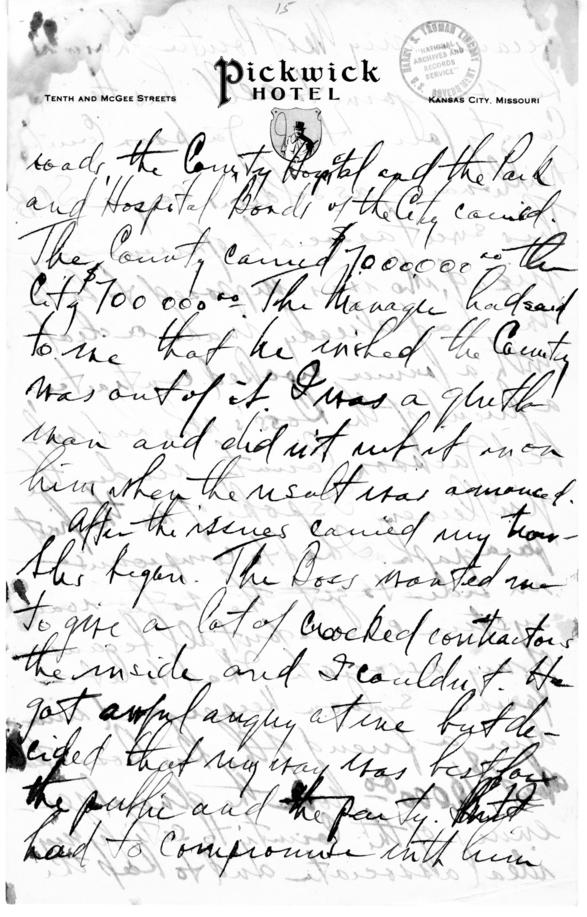 15
HARRY S. TRUMAN LIBRARY
"NATIONAL
ARCHIVES AND
RECORDS
SERVICE"
U.S. GOVERNMENT
Pickwick
HOTEL
TENTH AND MCGEE STREETS
KANSAS CITY, MISSOURI
roads, the County Hospital and the Park
and Hospital Bonds of the City carried.
The County carried $7000000.00 the
City $700 000.00. The Manager had said
to me that he wished the County
was out of it. I was a gentle
man and did not rub it in on
him when the result was anounced.
After the issues carried my trou-
bles began. The Boss wanted me
to give a lot of crooked contractors
the inside and I couldn't. He
got awful angry at me but de-
cided that my way was best for
the public and the party. But I
had to compromise with him